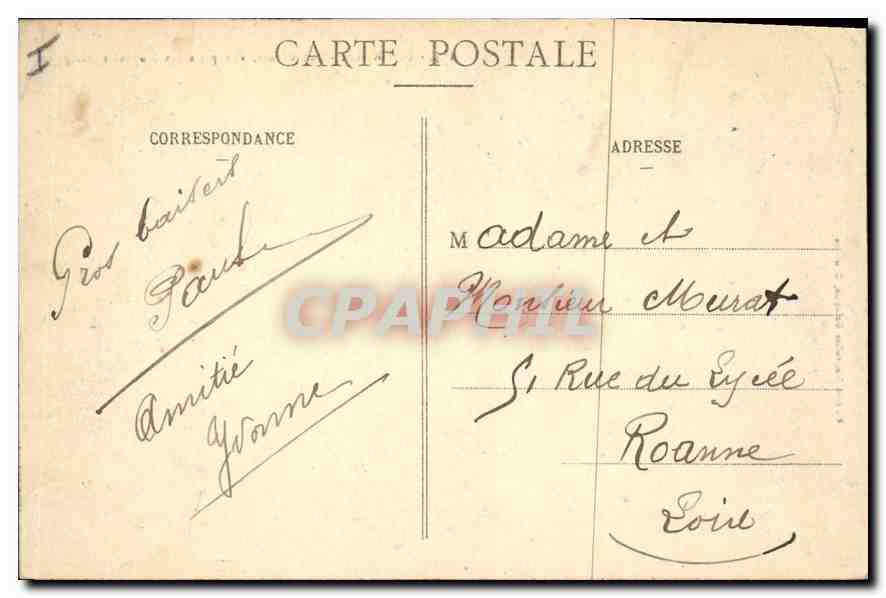 I
CARTE POSTALE
CORRESPONDANCE
Gros baisers
Paul
Amitié
Yvonne
ADRESSE
Madame et
Monsieur Murat
51 Rue du Lycée
Roanne
Loire
CPAPHIL